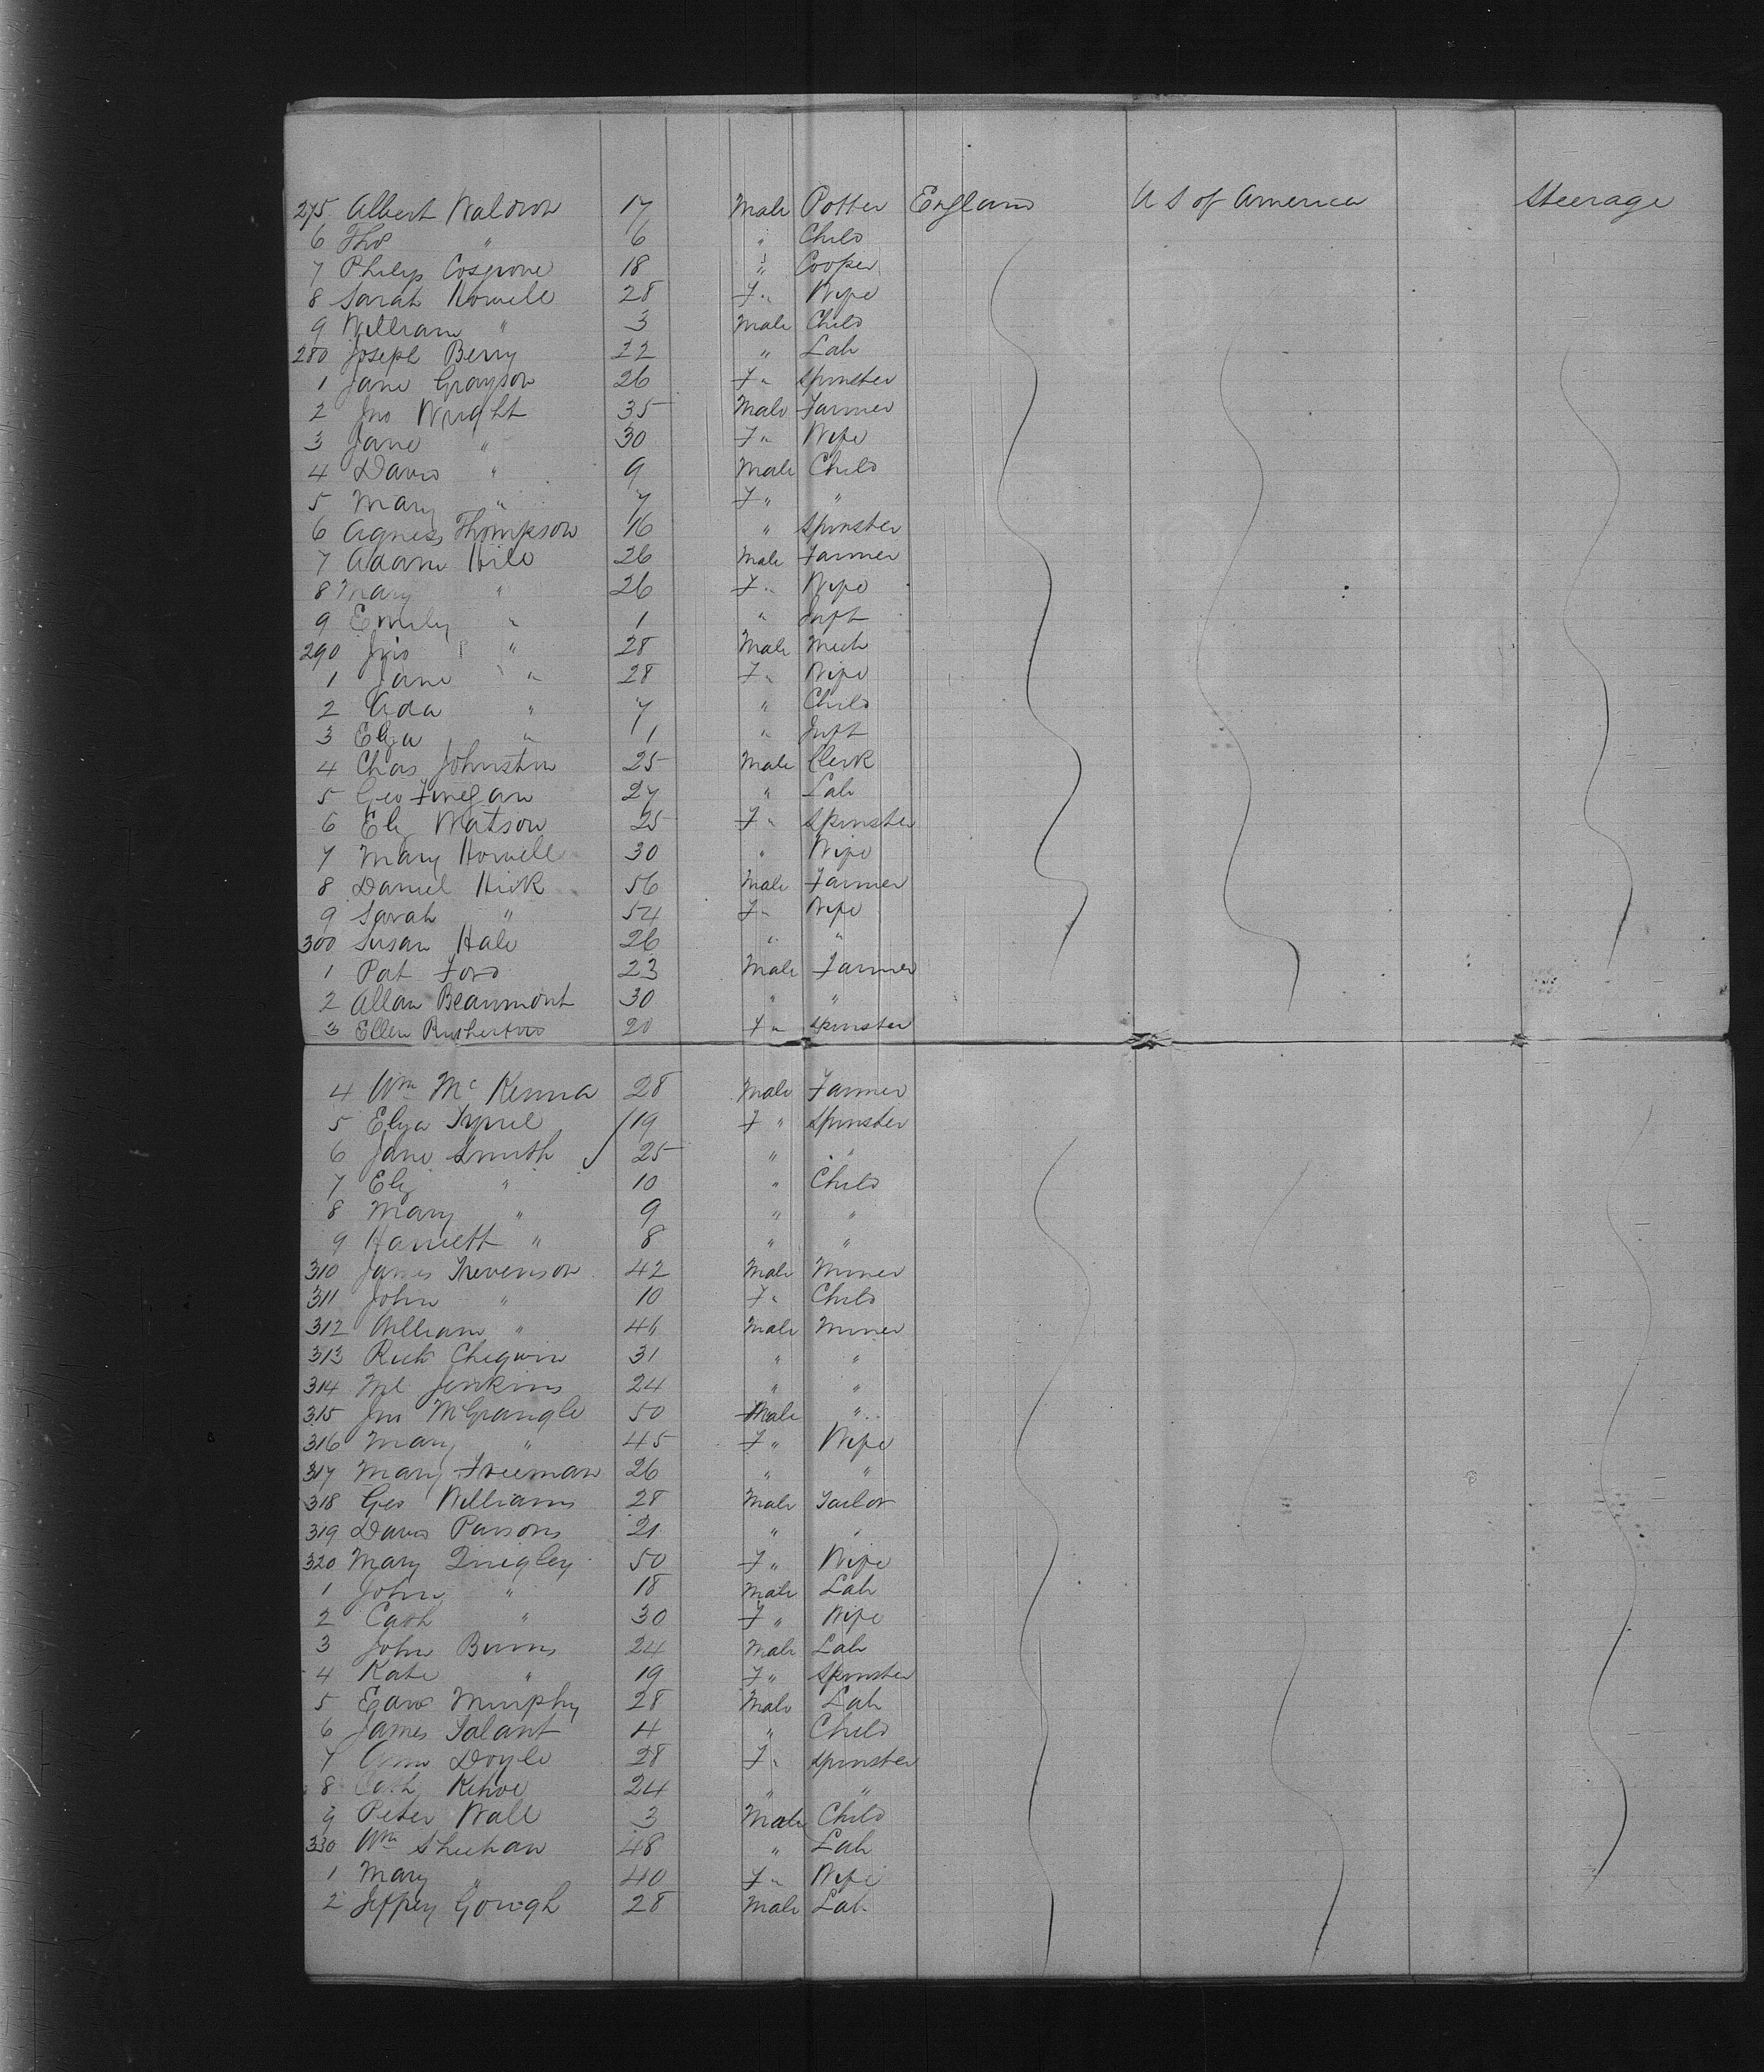 275 Albert Waldron 17 Male Potter England U S of America Steerage
6 Thos " 6 " Child
7 Philip Cosgrove 18 " Cooper
8 Sarah Howell 28 F " Wife
9 William " 3 Male Child
280 Joseph Berry 22 " Lab
1 Jane Grayson 26 F " Spinster
2 Jno Wright 35 Male Farmer
3 Jane " 30 F " Wife
4 David " 9 Male Child
5 Mary " 7 F " "
6 Agness Thompson 16 " Spinster
7 Adam 26 Male Farmer
8 Mary " 26 F " Wife
9 Emily " 1 " Inft
290 Jno " 28 Male Mech
1 Jane " 28 F " Wife
2 Ada " 7 " Child
3 Eliza " 1 " Inft
4 Chas Johnston 25 Male Clerk
5 Geo Finegan 27 " Lab
6 Eliz Watson 25 F " Spinster
7 Mary Howell 30 " Wife
8 Daniel Hick 56 Male Farmer
9 Sarah " 54 F " Wife
300 Susan Hale 26 " "
1 Pat Ford 23 Male Farmer
2 Allan Beaumont 30 " "
3 Ellen Rutherford 20 F " Spinster
4 Wm McKenna 28 Male Farmer
5 Eliza 19 F " Spinster
6 Jane Smith 25 " "
7 Eliz " 10 " Child
8 Mary " 9 " "
9 Harriett " 8 " "
310 James Trevenson 42 Male Miner
311 John " 10 F " Child
312 William " 46 Male Miner
313 Rich Chegwin 31 " "
314 Ml Jenkins 24 " "
315 Jno McGrangle 50 Male "
316 Mary " 45 F " Wife
317 Mary Freeman 26 " "
318 Geo Williams 28 Male Tailor
319 David Parsons 21 " "
320 Mary Quigley 50 F " Wife
1 John " 18 Male Lab
2 Cath " 30 F " Wife
3 John Burns 24 Male Lab
4 Kate " 19 F " Spinster
5 Edwd Murphy 28 Male Lab
6 James Talant 4 " Child
7 Ann Doyle 28 F " Spinster
8 Cath Kehoe 24 " "
9 Peter Wall 3 Male Child
330 Wm Sheehan 48 " Lab
1 Mary " 40 F " Wife
2 Jeffrey Gough 28 Male Lab